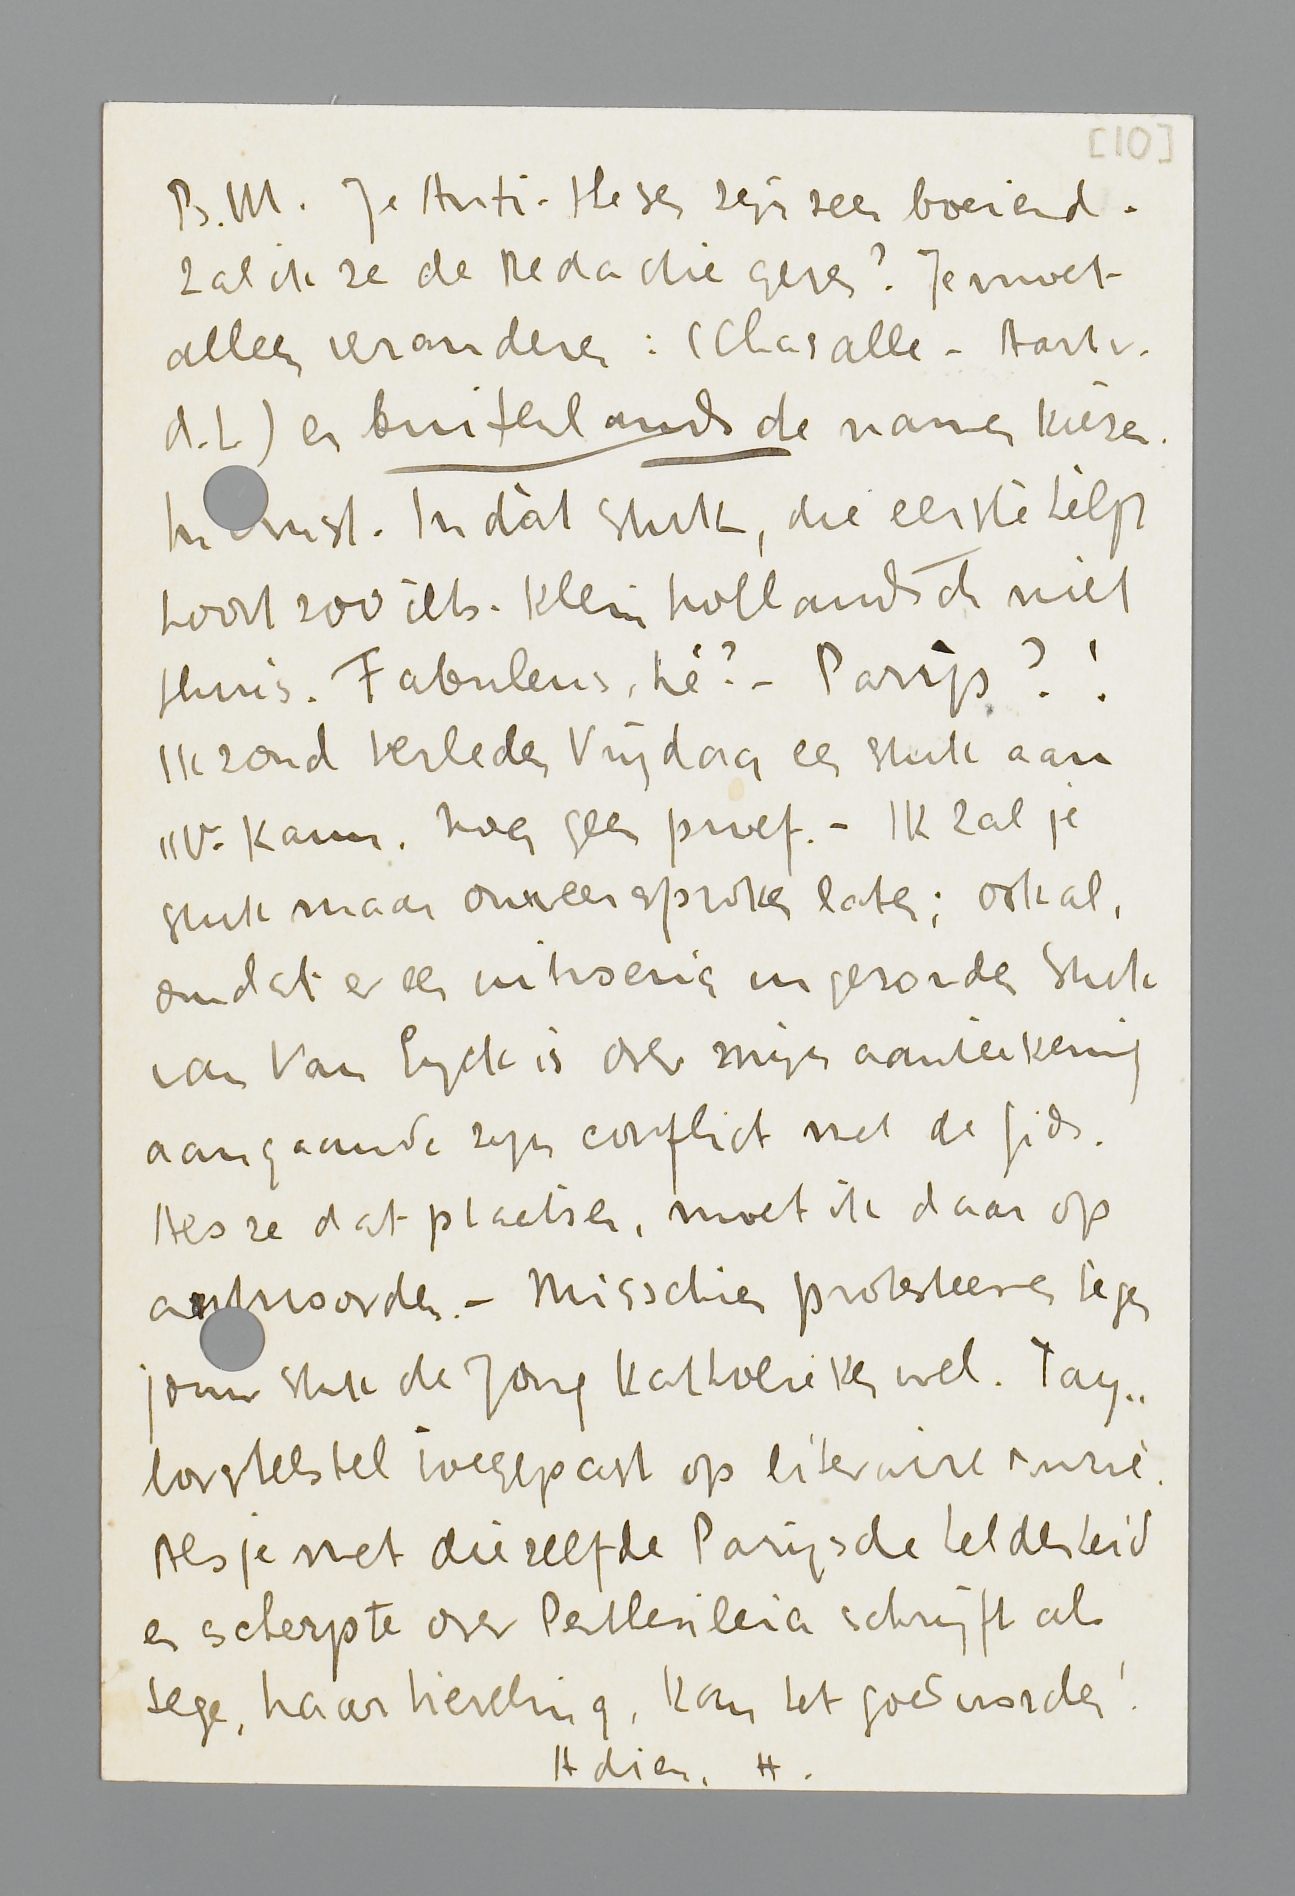 [10]
B.M. Je Anti-thesen zijn zeer boeiend.
Zal ik ze de Redactie geven? Je moet
alleen veranderen: (Chasalle - Aart v.
d. L) en buitenlandsche namen kiezen.
Ernst. In dàt stuk, die eerste hilp
hoort zoo iets. Klein hollandsch niet
thuis. Fabuleus, hè? - Parijs?!
Ik zond verleden Vrijdag een stuk aan
"V. Kam. Nog geen proef. - Ik zal je
stuk maar onweersproken laten; ook al,
omdat er een uitvoerig ingezonden Stuk
van Van Eyck is over mijn aanteekening
aangaande zijn conflict met de Gids.
Als ze dat plaatsen, moet ik daar op
antwoorden. - Misschien protesteeren tegen
jouw stuk de Jong Katholieken wel. Tay..
lorstelsel toegepast op literaire ruzie.
Als je met diezelfde Parijsche helderheid
en scherpte over Penthesileia schrijft als
tege, haar hierding, kan het goed worden!
Adieu. H.